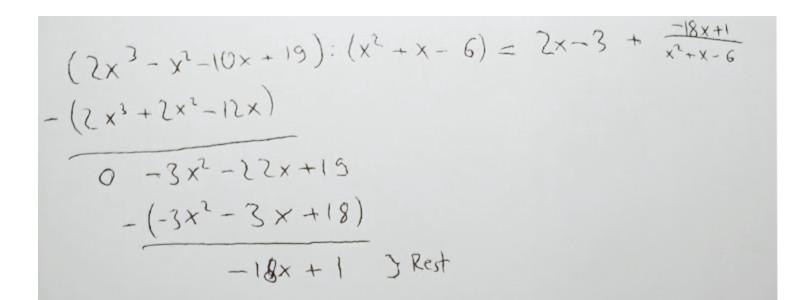 (2x³ - x² - 10x + 19) : (x² + x - 6) = 2x - 3 + (-18x + 1)/(x² + x - 6)
- (2x³ + 2x² - 12x)
0 - 3x² - 22x + 19
- (-3x² - 3x + 18)
-18x + 1 } Rest